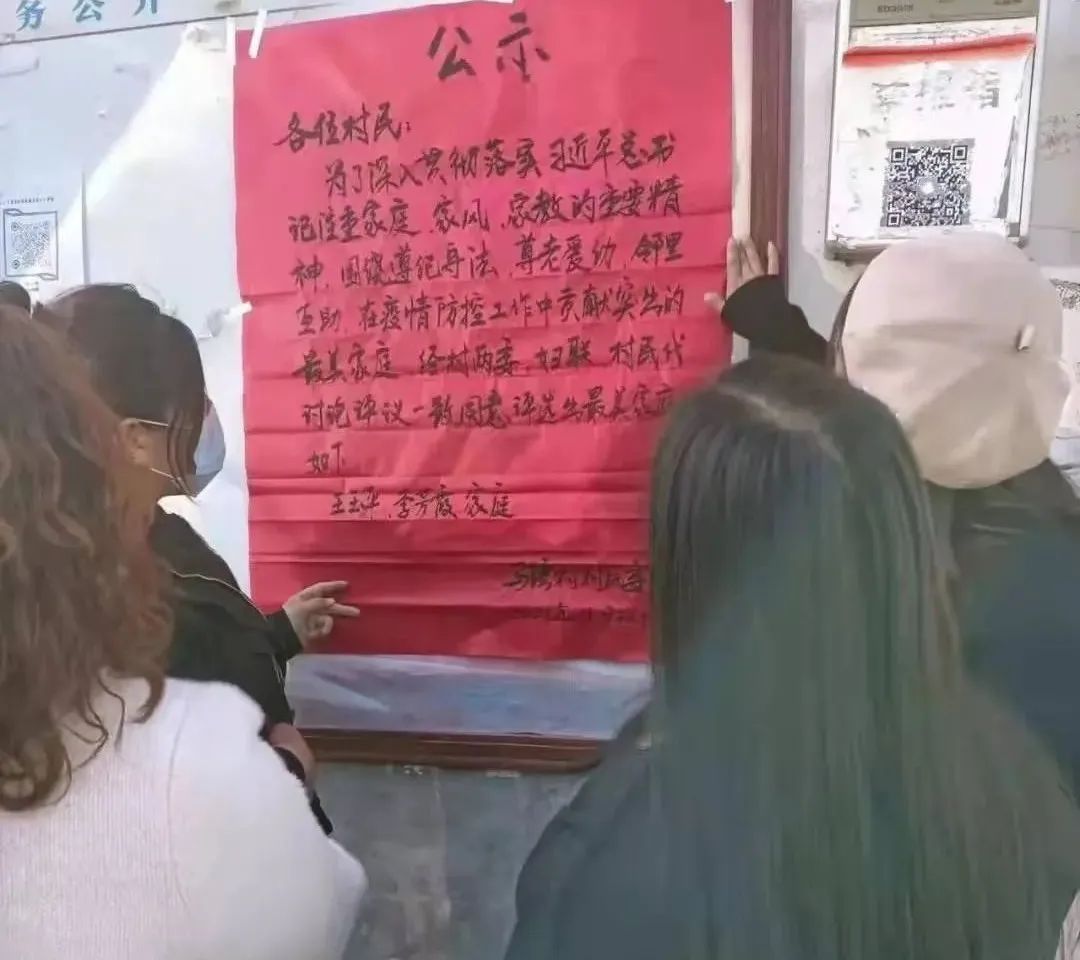 务公开
公示
各位村民：
为了深入贯彻落实习近平总书
记注重家庭、家风、家教的重要精
神,围绕遵纪守法、尊老爱幼、邻里
互助、在疫情防控工作中贡献突出的
最美家庭、经村两委、妇联、村民代
讨论评议一致同意,评选出最美家庭
如下
王玉萍、李芳霞家庭